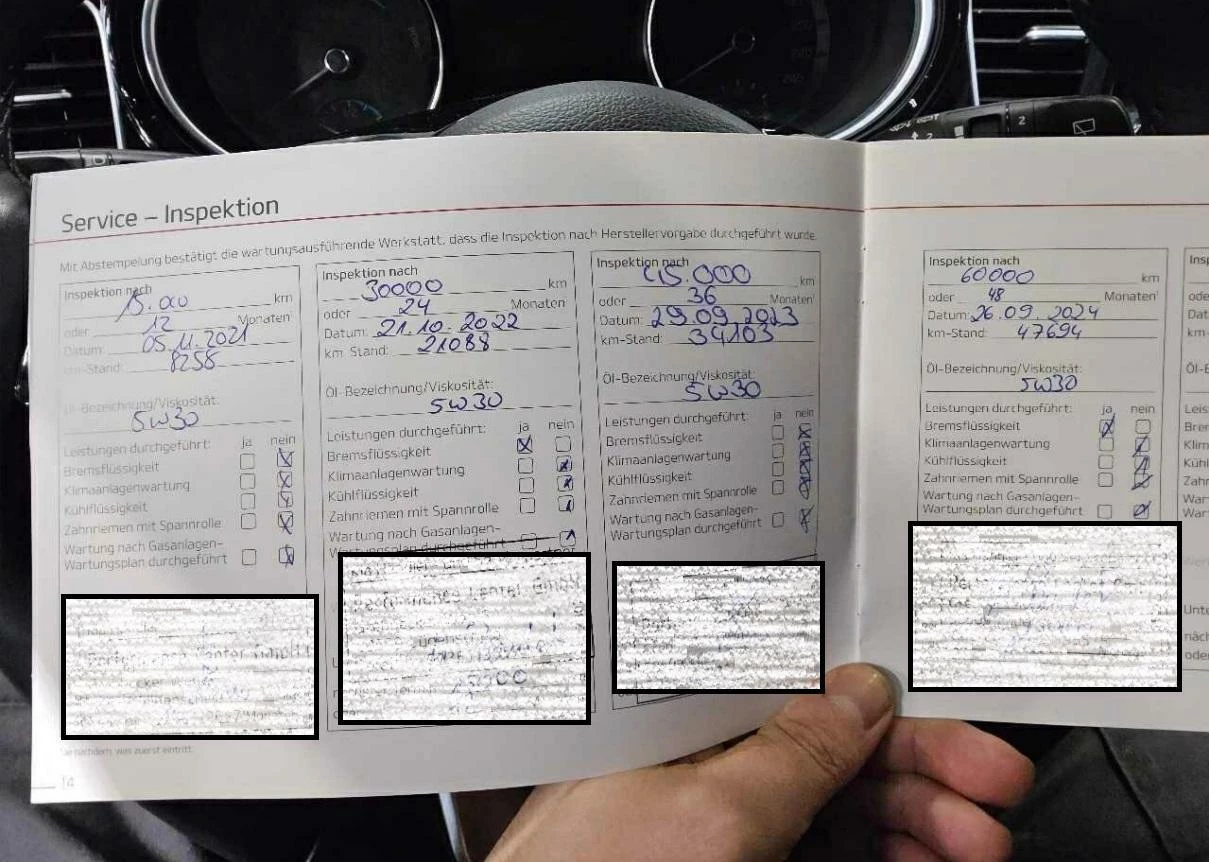 Service – Inspektion
Mit Abstempelung bestätigt die wartungsausführende Werkstatt, dass die Inspektion nach Herstellervorgabe durchgeführt wurde.
Inspektion nach
15.00 km
oder 12 Monaten¹
Datum: 05.11.2021
km-Stand: 8258
Öl-Bezeichnung/Viskosität:
5W30
Leistungen durchgeführt: ja nein
Bremsflüssigkeit
Klimaanlagenwartung
Kühlflüssigkeit
Zahnriemen mit Spannrolle
Wartung nach Gasanlagen-
Wartungsplan durchgeführt
Inspektion nach
30000 km
oder 24 Monaten¹
Datum: 21.10.2022
km Stand: 21088
Öl-Bezeichnung/Viskosität:
5W30
Leistungen durchgeführt: ja nein
Bremsflüssigkeit
Klimaanlagenwartung
Kühlflüssigkeit
Zahnriemen mit Spannrolle
Wartung nach Gasanlagen-
Wartungsplan durchgeführt
Inspektion nach
45.000 km
oder 36 Monaten¹
Datum: 29.09.2023
km-Stand: 34103
Öl-Bezeichnung/Viskosität:
5W30
Leistungen durchgeführt: ja nein
Bremsflüssigkeit
Klimaanlagenwartung
Kühlflüssigkeit
Zahnriemen mit Spannrolle
Wartung nach Gasanlagen-
Wartungsplan durchgeführt
¹ Je nachdem, was zuerst eintritt.
14
Inspektion nach
60000 km
oder 48 Monaten¹
Datum: 26.09.2024
km-Stand: 47694
Öl-Bezeichnung/Viskosität:
5W30
Leistungen durchgeführt: ja nein
Bremsflüssigkeit
Klimaanlagenwartung
Kühlflüssigkeit
Zahnriemen mit Spannrolle
Wartung nach Gasanlagen-
Wartungsplan durchgeführt